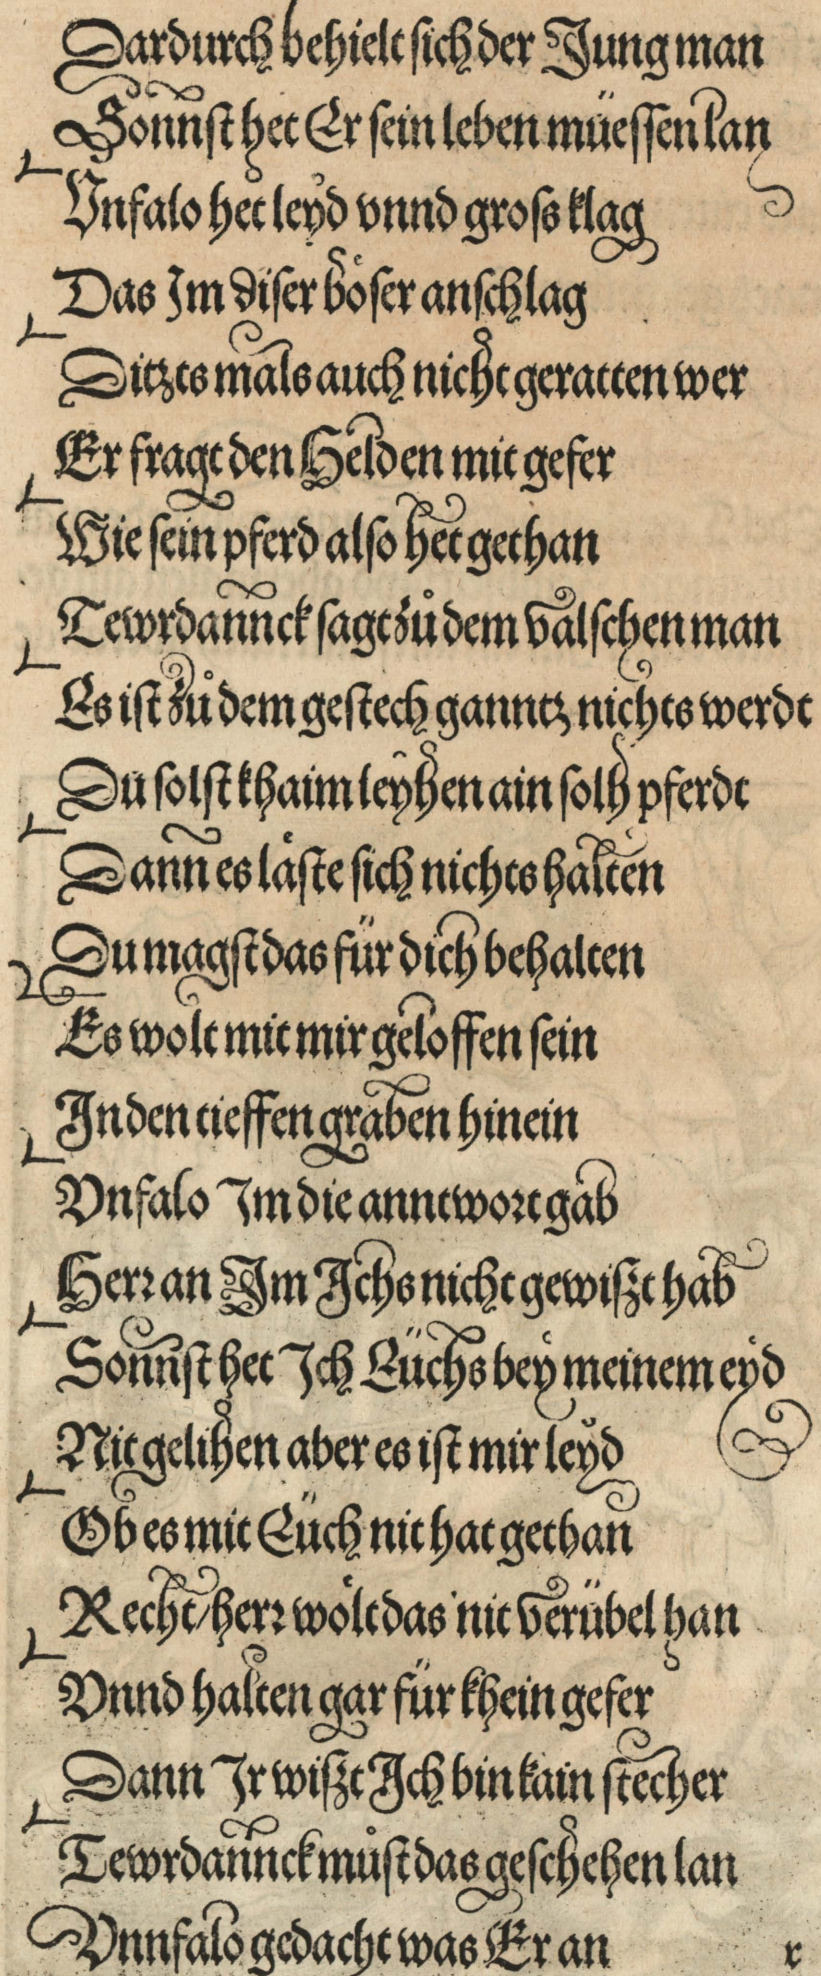 Dardurch behielt sich der Jung man
Sonnst het Er sein leben müessen lan
Vnfalo het leyd vnnd gross klag
Das Im diser böser anschlag
Ditzts mals auch nicht geratten wer
Er fragt den Helden mit gefer
Wie sein pferd also het gethan
Tewrdannck sagt zů dem valschen man
Es ist zů dem gestech ganntz nichts werdt
Du solst khaim leyhen ain solh pferdt
Dann es låste sich nichts halten
Du magst das für dich behalten
Es wolt mit mir geloffen sein
In den tieffen graben hinein
Vnfalo Im die anntwort gab
Herr an Im Ichs nicht gewißt hab
Sonnst het Ich Eüchs bey meinem eyd
Nit gelihen aber es ist mir leyd
Ob es mit Eüch nit hat gethan
Recht/herr wölt das nit verübel han
Vnnd halten gar für khein gefer
Dann Ir wißt Ich bin kain stecher
Tewrdannck můst das geschehen lan
Vnnfalo gedacht was Er an
r